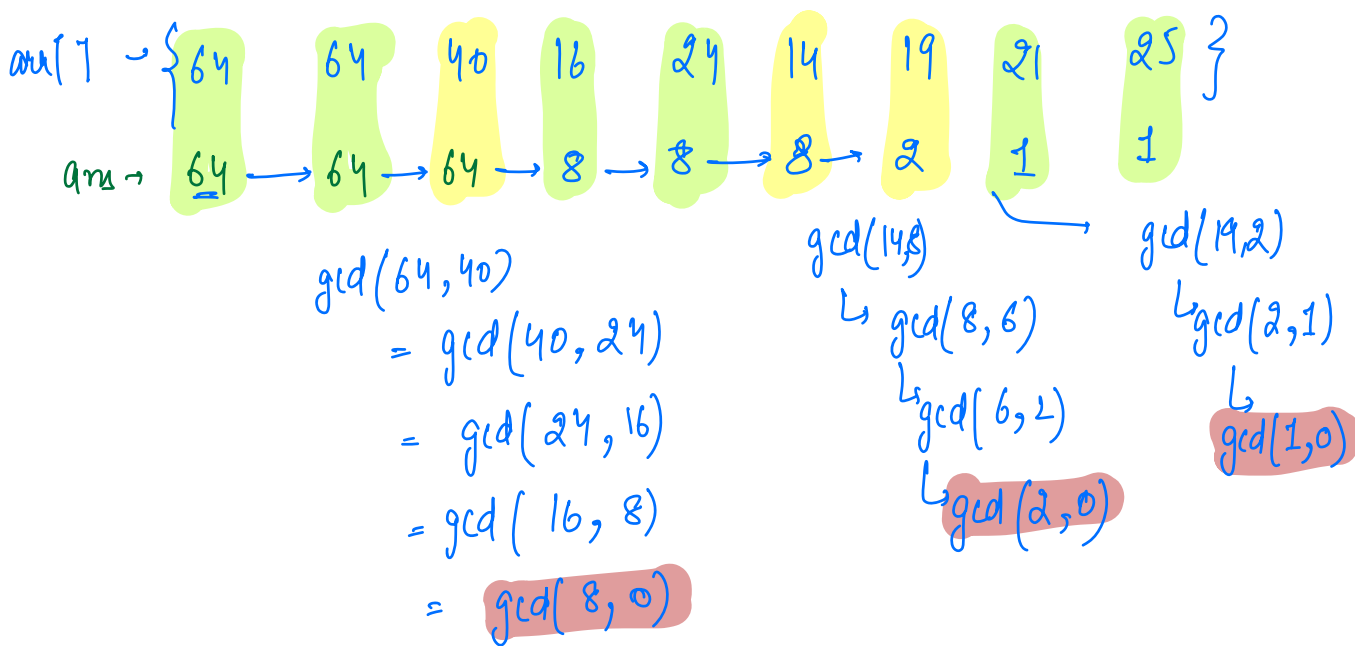 arr[] → { 64 64 40 16 24 14 19 21 25 }
ans → 64 → 64 → 64 → 8 → 8 → 8 → 2 1 1
gcd(64, 40)
= gcd(40, 24)
= gcd(24, 16)
= gcd(16, 8)
= gcd(8, 0)
gcd(14,8)
↳ gcd(8, 6)
↳ gcd(6, 2)
↳ gcd(2, 0)
gcd(19,2)
↳ gcd(2, 1)
↳ gcd(1, 0)